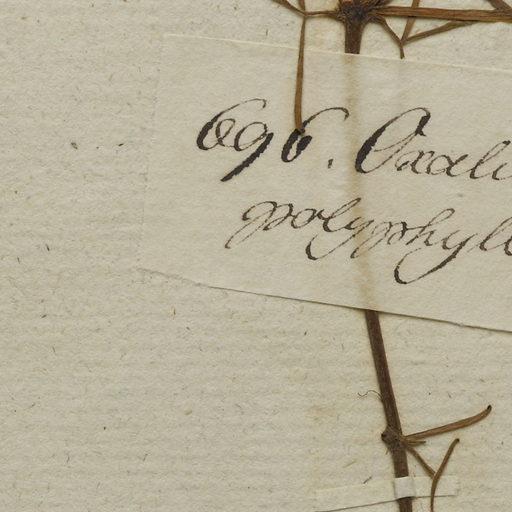 696. Oxali
polyphyll